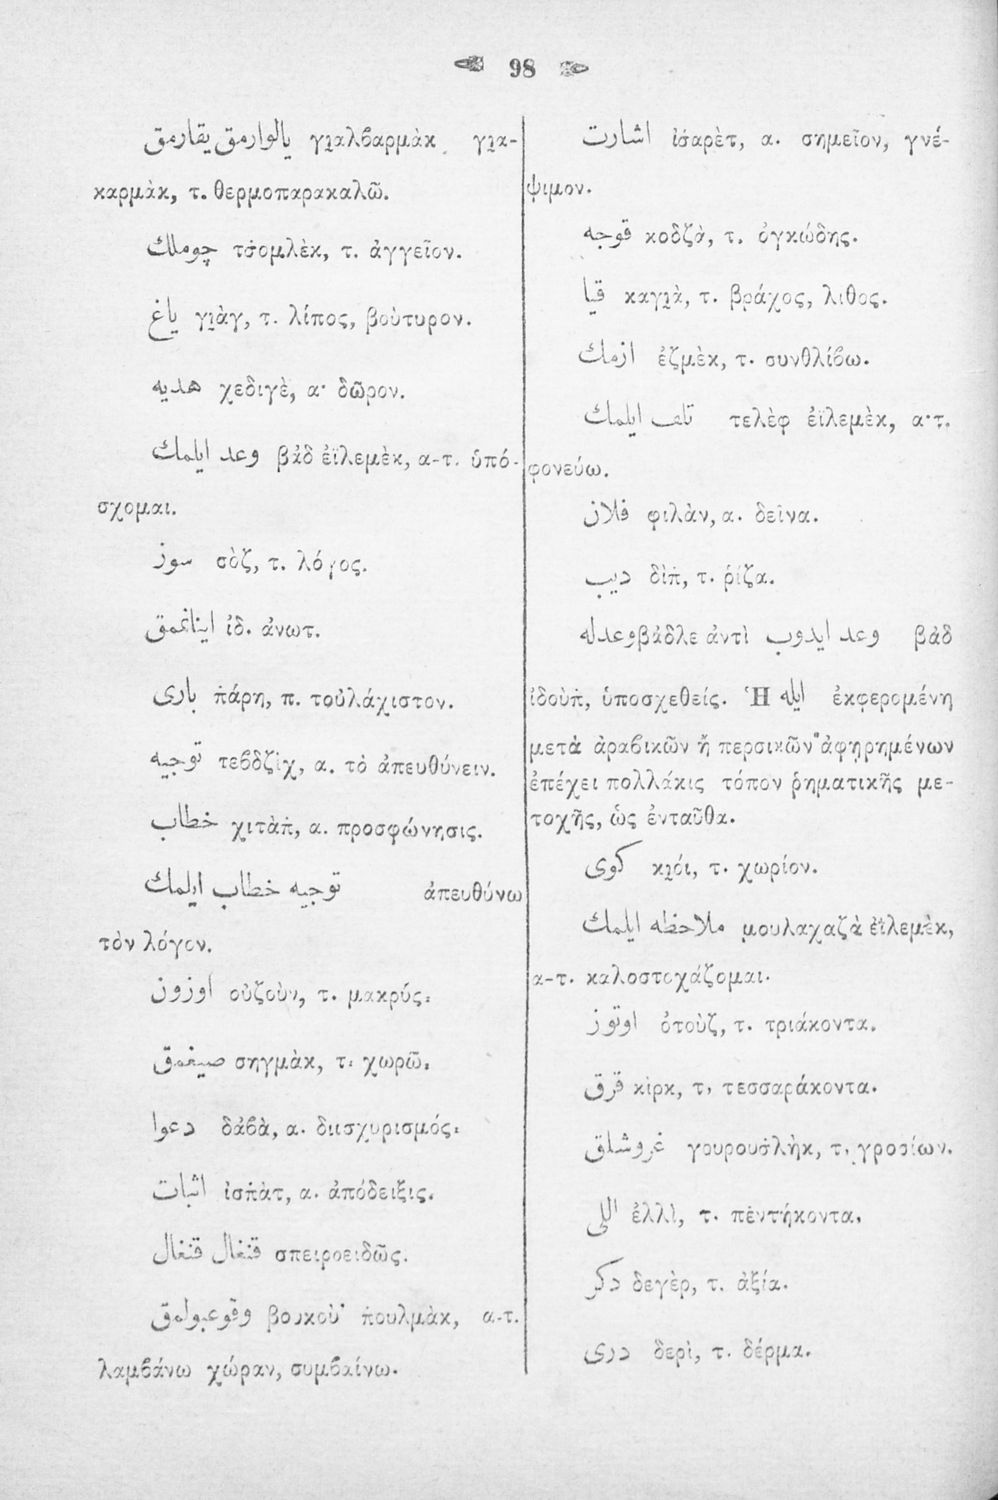 98
يالوارمق يقارمق γιαλβαρμὰκ για-
καρμὰκ, τ. θερμοπαρακαλῶ.
چوملك τσομλὲκ, τ. ἀγγεῖον.
ياغ γιὰγ, τ. λίπος, βούτυρον.
هديه χεδιγὲ, α· δῶρον.
وعد ايلمك βὰδ ἐϊλεμὲκ, α-τ. ὑπό-
σχομαι.
سوز σὸζ, τ. λόγος.
ايناغمق ἰδ. ἀνωτ.
بارى πάρη, π. τοὐλάχιστον.
توجيه τεβδζὶχ, α. τὸ ἀπευθύνειν.
خطاب χιτὰπ, α. προσφώνησις.
توجيه خطاب ايلمك ἀπευθύνω
τὸν λόγον.
اوزون οὐζοὺν, τ. μακρύς.
صيغمق σηγμὰκ, τ. χωρῶ.
دعوا δἀβὰ, α. διισχυρισμός.
اثبات ἰσπὰτ, α. ἀπόδειξις.
قنغال قنغال σπειροειδῶς.
وقوعبولمق βουκοὺ πουλμὰκ, α-τ.
λαμβάνω χώραν, συμβαίνω.
اشارت ἰσαρὲτ, α. σημεῖον, γνέ-
ψιμον.
قوجه κοδζὰ, τ. ὀγκώδης.
قيا καγιὰ, τ. βράχος, λιθος.
ازمك ἐζμὲκ, τ. συνθλίβω.
تلف ايلمك τελὲφ ἐϊλεμὲκ, α·τ.
φονεύω.
فلان φιλὰν, α. δεῖνα.
ديب δὶπ, τ. ῥίζα.
وعدله βάδλε ἀντὶ وعد ايدوب βὰδ
ἰδοὺπ, ὑποσχεθείς. Ἡ ايله ἐκφερομένη
μετὰ ἀραβικῶν ἢ περσικῶν ἀφῃρημένων
ἐπέχει πολλάκις τόπον ῥηματικῆς με-
τοχῆς, ὡς ἐνταῦθα.
كوى κιόι, τ. χωρίον.
ملاحظه ايلمك μουλαχαζὰ ἐϊλεμὲκ,
α-τ. καλοστοχάζομαι.
اوتوز ὀτοὺζ, τ. τριάκοντα.
قرق κὶρκ, τ. τεσσαράκοντα.
غروشلق γουρουσλὴκ, τ. γροσίων.
اللى ἐλλὶ, τ. πεντήκοντα.
دكر δεγὲρ, τ. ἀξία.
درى δερὶ, τ. δέρμα.